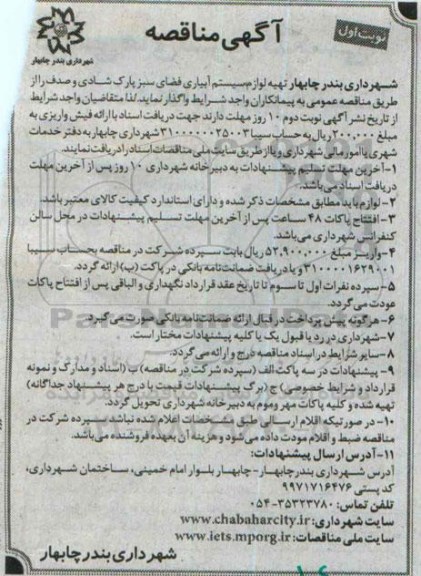 نوبت اول
آگهی مناقصه
شهرداری بندر چابهار
شهرداری بندر چابهار تهیه لوازم سیستم آبیاری فضای سبز پارک شادی و صدف را از
طریق مناقصه عمومی به پیمانکاران واجد شرایط واگذار نماید. لذا متقاضیان واجد شرایط
از تاریخ نشر آگهی نوبت دوم ۱۰ روز مهلت دارند جهت دریافت اسناد با ارائه فیش واریزی به
مبلغ ۲۰۰,۰۰۰ ریال به حساب سیبا ۳۱۰۰۰۰۰۰۲۵۰۰۳ شهرداری چابهار به دفتر خدمات
شهری یا امور مالی شهرداری و یا از طریق سایت ملی مناقصات اسناد را دریافت نمایند.
۱-آخرین مهلت تسلیم پیشنهادات به دبیرخانه شهرداری ۱۰ روز پس از آخرین مهلت
دریافت اسناد می باشد.
۲-لوازم باید مطابق مشخصات ذکر شده و دارای استاندارد کیفیت کالای معتبر باشد.
۳- افتتاح پاکات ۴۸ ساعت پس از آخرین مهلت تسلیم پیشنهادات در محل سالن
کنفرانس شهرداری می باشد.
۴-واریز مبلغ ۵۲,۹۰۰,۰۰۰ ریال بابت سپرده شرکت در مناقصه بحساب سیبا
۳۱۰۰۰۰۱۶۲۹۰۰۱ و یا دریافت ضمانت نامه بانکی در پاکت (ب) ارائه گردد.
۵-سپرده نفرات اول تا سوم تا تاریخ عقد قرارداد نگهداری و الباقی پس از افتتاح پاکات
عودت می گردد.
۶-هرگونه پیش پرداخت در قبال ارائه ضمانت نامه بانکی صورت می گیرد.
۷-شهرداری در رد یا قبول یک یا کلیه پیشنهادات مختار است.
۸-سایر شرایط در اسناد مناقصه درج و ارائه می گردد.
۹- پیشنهادات در سه پاکت الف (سپرده شرکت در مناقصه) ب (اسناد و مدارک و نمونه
قرارداد و شرایط خصوصی) ج (برگ پیشنهادات قیمت با درج هر پیشنهاد جداگانه)
تهیه شده و کلیه پاکات مهر و موم به دبیرخانه شهرداری تحویل گردد.
۱۰- در صورتیکه اقلام ارسالی طبق مشخصات اعلام شده نباشد سپرده شرکت در
مناقصه ضبط و اقلام مودت داده می شود و هزینه آن بعهده فروشنده می باشد.
۱۱-آدرس ارسال پیشنهادات:
آدرس شهرداری بندر چابهار- چابهار بلوار امام خمینی، ساختمان شهرداری،
کد پستی ۹۹۷۱۷۱۶۴۷۶
تلفن تماس: ۳۵۳۲۳۷۸۰-۰۵۴
سایت شهرداری: www.chabaharcity.ir
سایت ملی مناقصات: www.iets.mporg.ir
شهرداری بندر چابهار